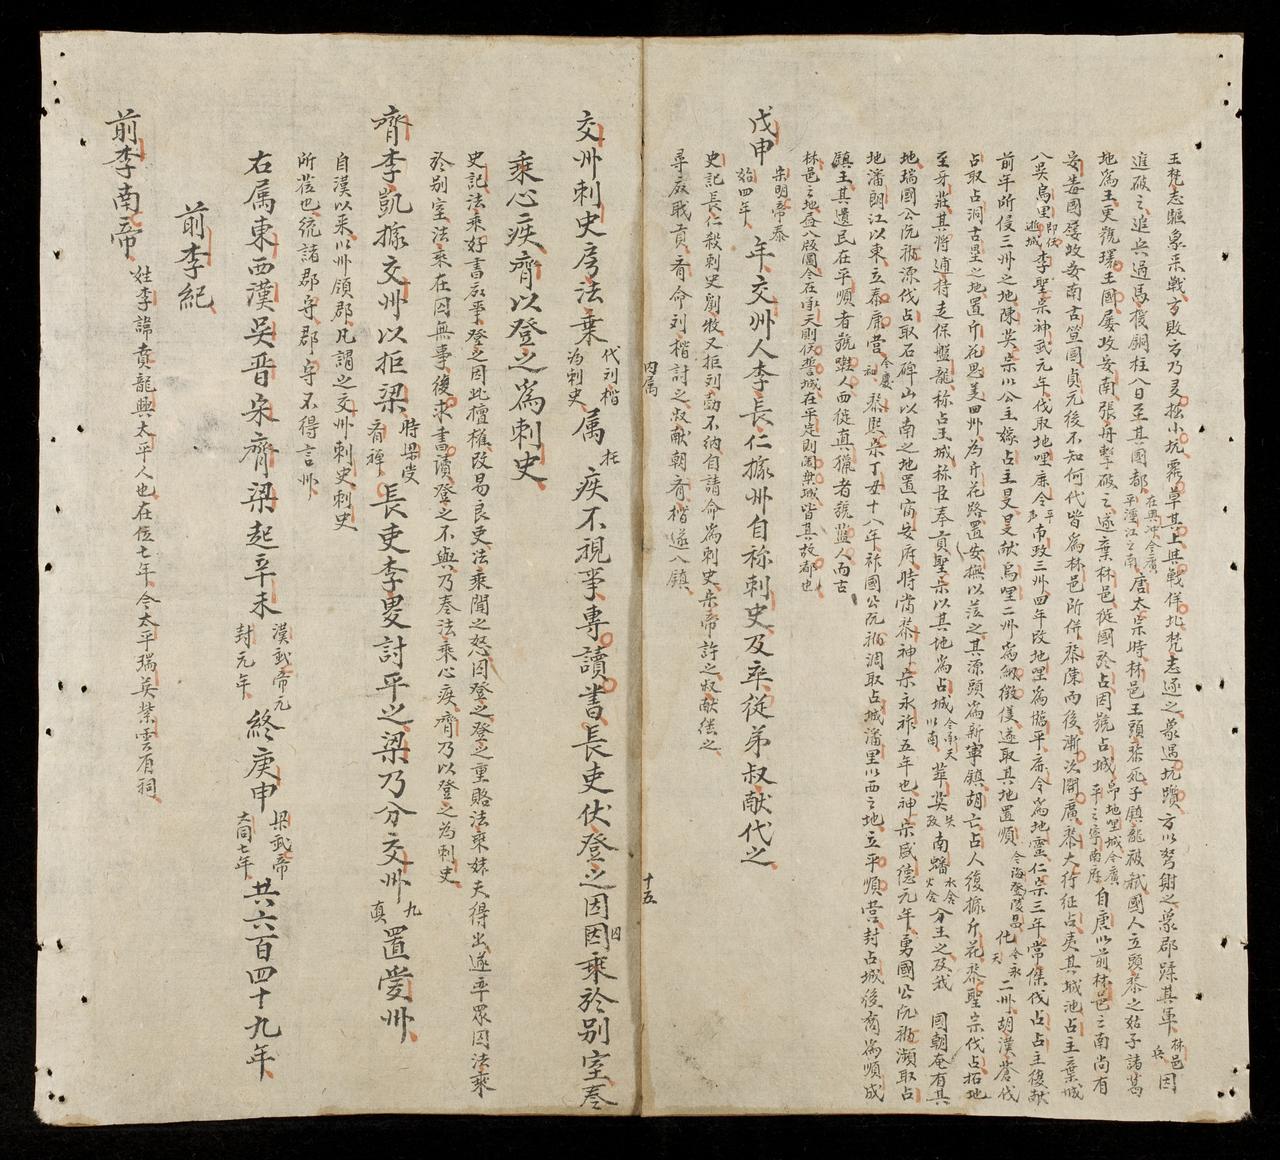 王梵志驅象來戰方敗乃多掘小坑覆草其上共戰佯北梵志逐之象遇坑躓方以弩射之象郤蹂其軍林邑兵因
進破之追兵過馬援銅柱八日至其國都在興沖今廣平潼江之南唐太宗時林邑王頭黎死子鎮龍被弒國人立頭黎之姑子諸葛
地為王更號環王國屢攻安南張舟擊破之遂棄林邑徙國於占因號占城即地哩城今廣平之寧南府自唐以前林邑之南尚有
安毒國屢攻安南古笪國貞元後不知何代皆為林邑所併黎陳而後漸次開廣黎大行征占夷其城池占主棄城
入吳烏里即伎遊城李聖宗神武元年伐取地哩麻令平声布政三州四年改地哩為臨平麻令為地靈仁宗三年常傑伐占占主復獻
前年所侵三州之地陳英宗以公主嫁占主旻旻献烏哩二州為納徵後遂取其地置順今海登陵昌化今永天二州胡漢蒼伐
占取占洞古壘之地置升花思義四州為升花路置安撫以莅之其源頭為新寧鎮胡亡占人復據升花黎聖宗伐占拓地
至牙莊其將逋持走保盤龍称占主城称臣奉貢聖宗以其地為占城今承天以南華英失攷南蟠水舍火舍分王之及我國朝奄有其
地瑞國公阮福源伐占取石碑山以南之地置富安府時當黎神宗永祚五年也神宗盛德元年勇國公阮福瀕取占
地潘朗江以東立泰康營今慶和黎熙宗丁丑十八年祚國公阮福淍取占城潘里以西之地立平順營封占城後裔為順成
鎮王其遺民在平順者號蠻人西徙真獵者號藍人而古
林邑之地盡入版圖今在承天則佚誓城在平定則闍槃城皆其故都也
戊申宋明帝泰始四年年交州人李長仁據州自称刺史及卒從弟叔献代之
史記長仁殺刺史劉牧又拒劉勔不納自請命為刺史宋帝許之叔献継之
尋廢職貢齊命刘楷討之叔献朝齊楷遂入鎮
内属 十五
交州刺史房法乗代刘楷為刺史属托疾不視事專讀書長吏伏登之因囚乘於别室奏
乘心疾齊以登之為刺史
史記法乘好書啚事登之因此擅權改易良吏法乘聞之怒囚登之登之重賂法乘妹夫得出遂率眾囚法乘
於别室法乘在囚無事復求書讀登之不與乃奏法乘心疾齊乃以登之為刺史
齊李凱據交州以拒梁時梁受齊禅長吏李畟討平之梁乃分交州九真置愛州
自漢以來以州領郡凡謂之交州刺史刺史
所莅也統諸郡守郡守不得言州
右属東西漢吳晋宋齊梁起辛未漢武帝元封元年終庚申梁武帝大同七年共六百四十九年
前李紀
前李南帝姓李諱賁龍興太平人也在位七年今太平瑞英紫雲有祠